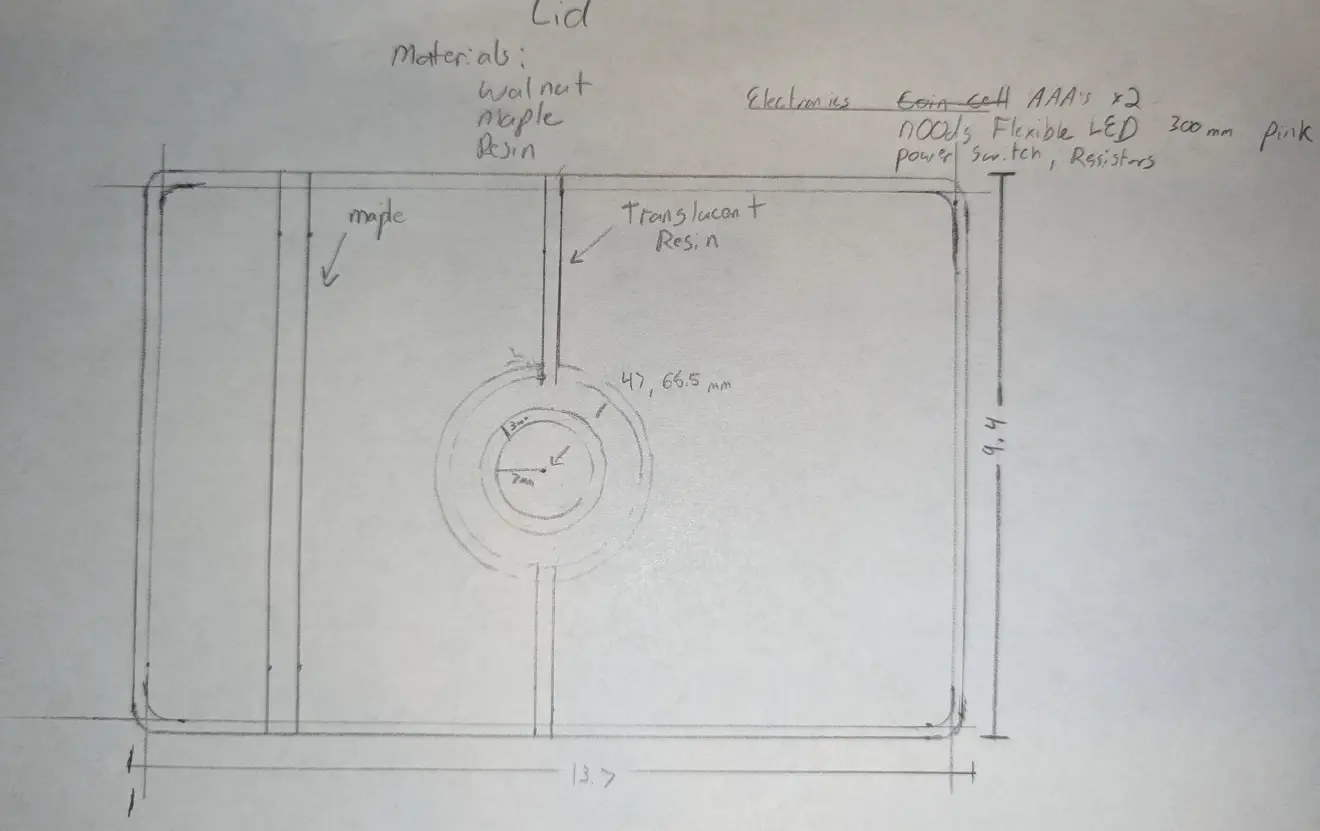 Lid
Materials:
Walnut
Maple
Resin
Electronics Coin Cell AAA's x2
nOOds Flexible LED 300mm pink
power switch, Resistors
maple
Translucent
Resin
47, 66.5 mm
3mm
7mm
9.4
13.7